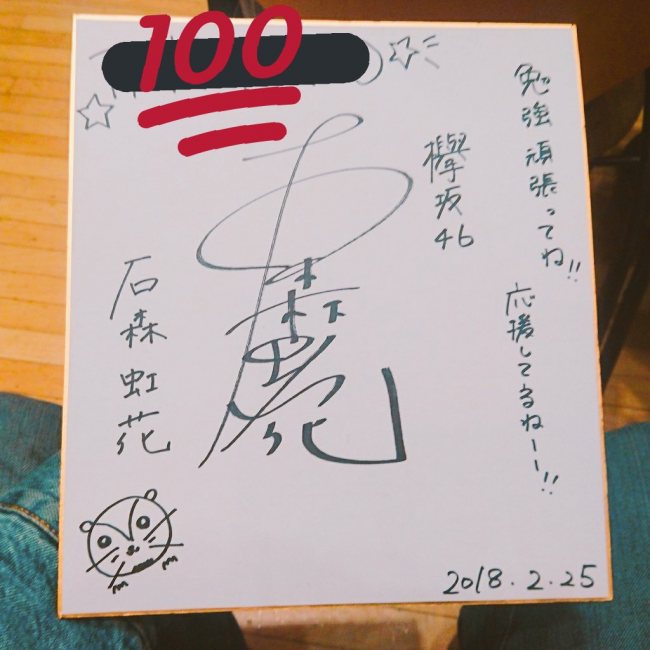 100
勉強頑張ってね!!
応援してるねーー!!
欅坂46
石森虹花
2018.2.25